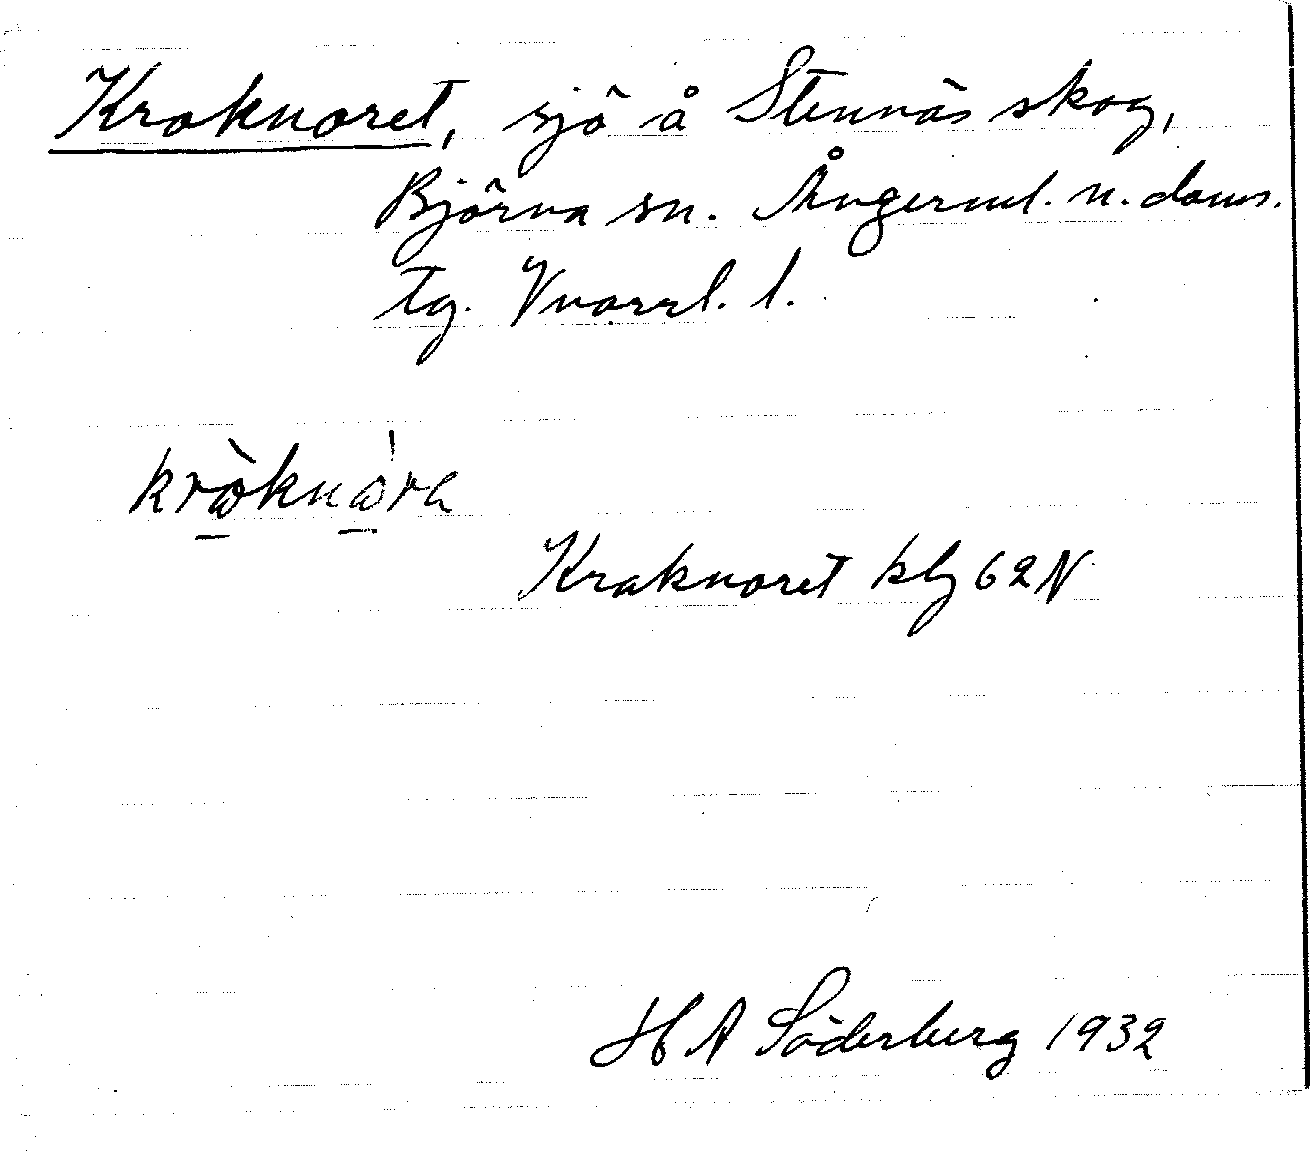 Kroknoret, sjö å Stennäs skog,
Björna sn. Ångerml. n. doms.
tg. Vnorrl. l.
kròknòra
Kroknoret kbl 62 N
H A Söderberg 1932